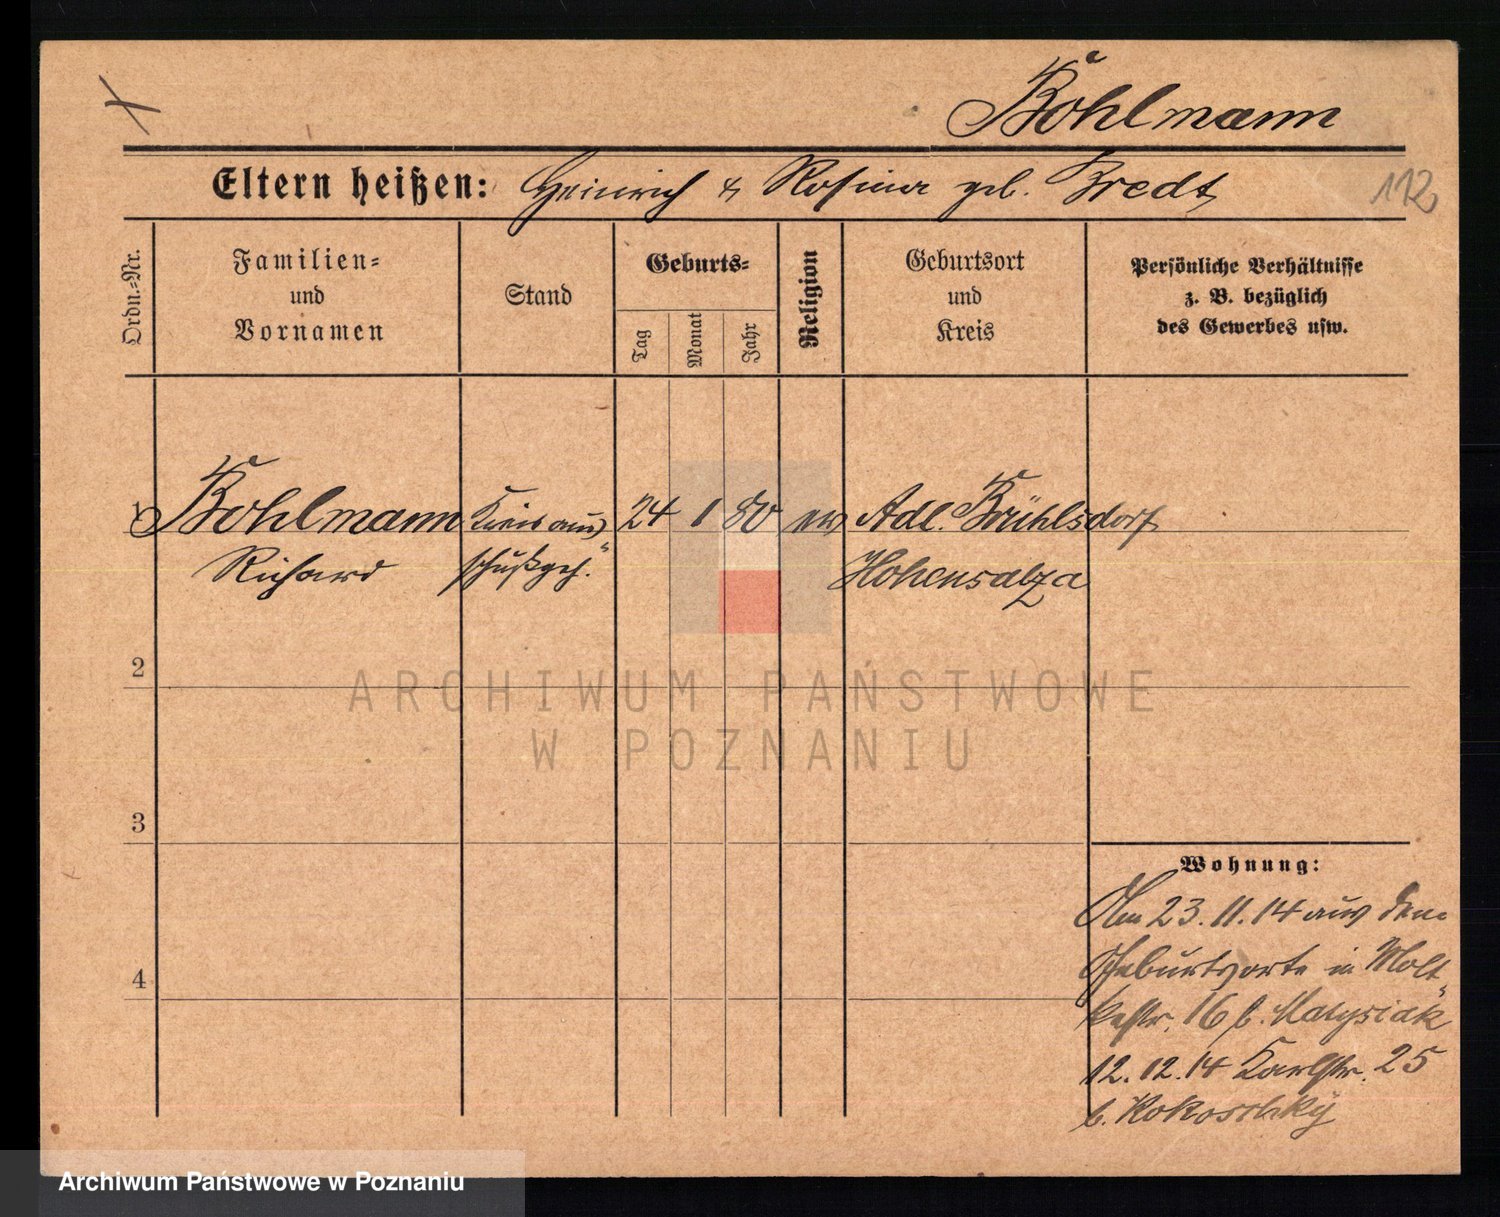 Bohlmann
Eltern heißen: Heinrich & Rosina geb. Bredt
112
Ordn.-Nr.
Familien-
und
Vornamen
Stand
Geburts-
Tag
Monat
Jahr
Religion
Geburtsort
und
Kreis
Persönliche Verhältnisse
z. B. bezüglich
des Gewerbes usw.
1 Bohlmann Kreisaus 24 1 80 ev Adl. Brühlsdorf
Richard schußgeh. Hohensalza
2
3
4
Wohnung:
Am 23.11.14 aus dem
Geburtsorte in Molt
kestr. 16 b. Matysiak
12.12.14 Karlstr. 25
b. Kokoschky
ARCHIWUM PAŃSTWOWE
W POZNANIU
Archiwum Państwowe w Poznaniu